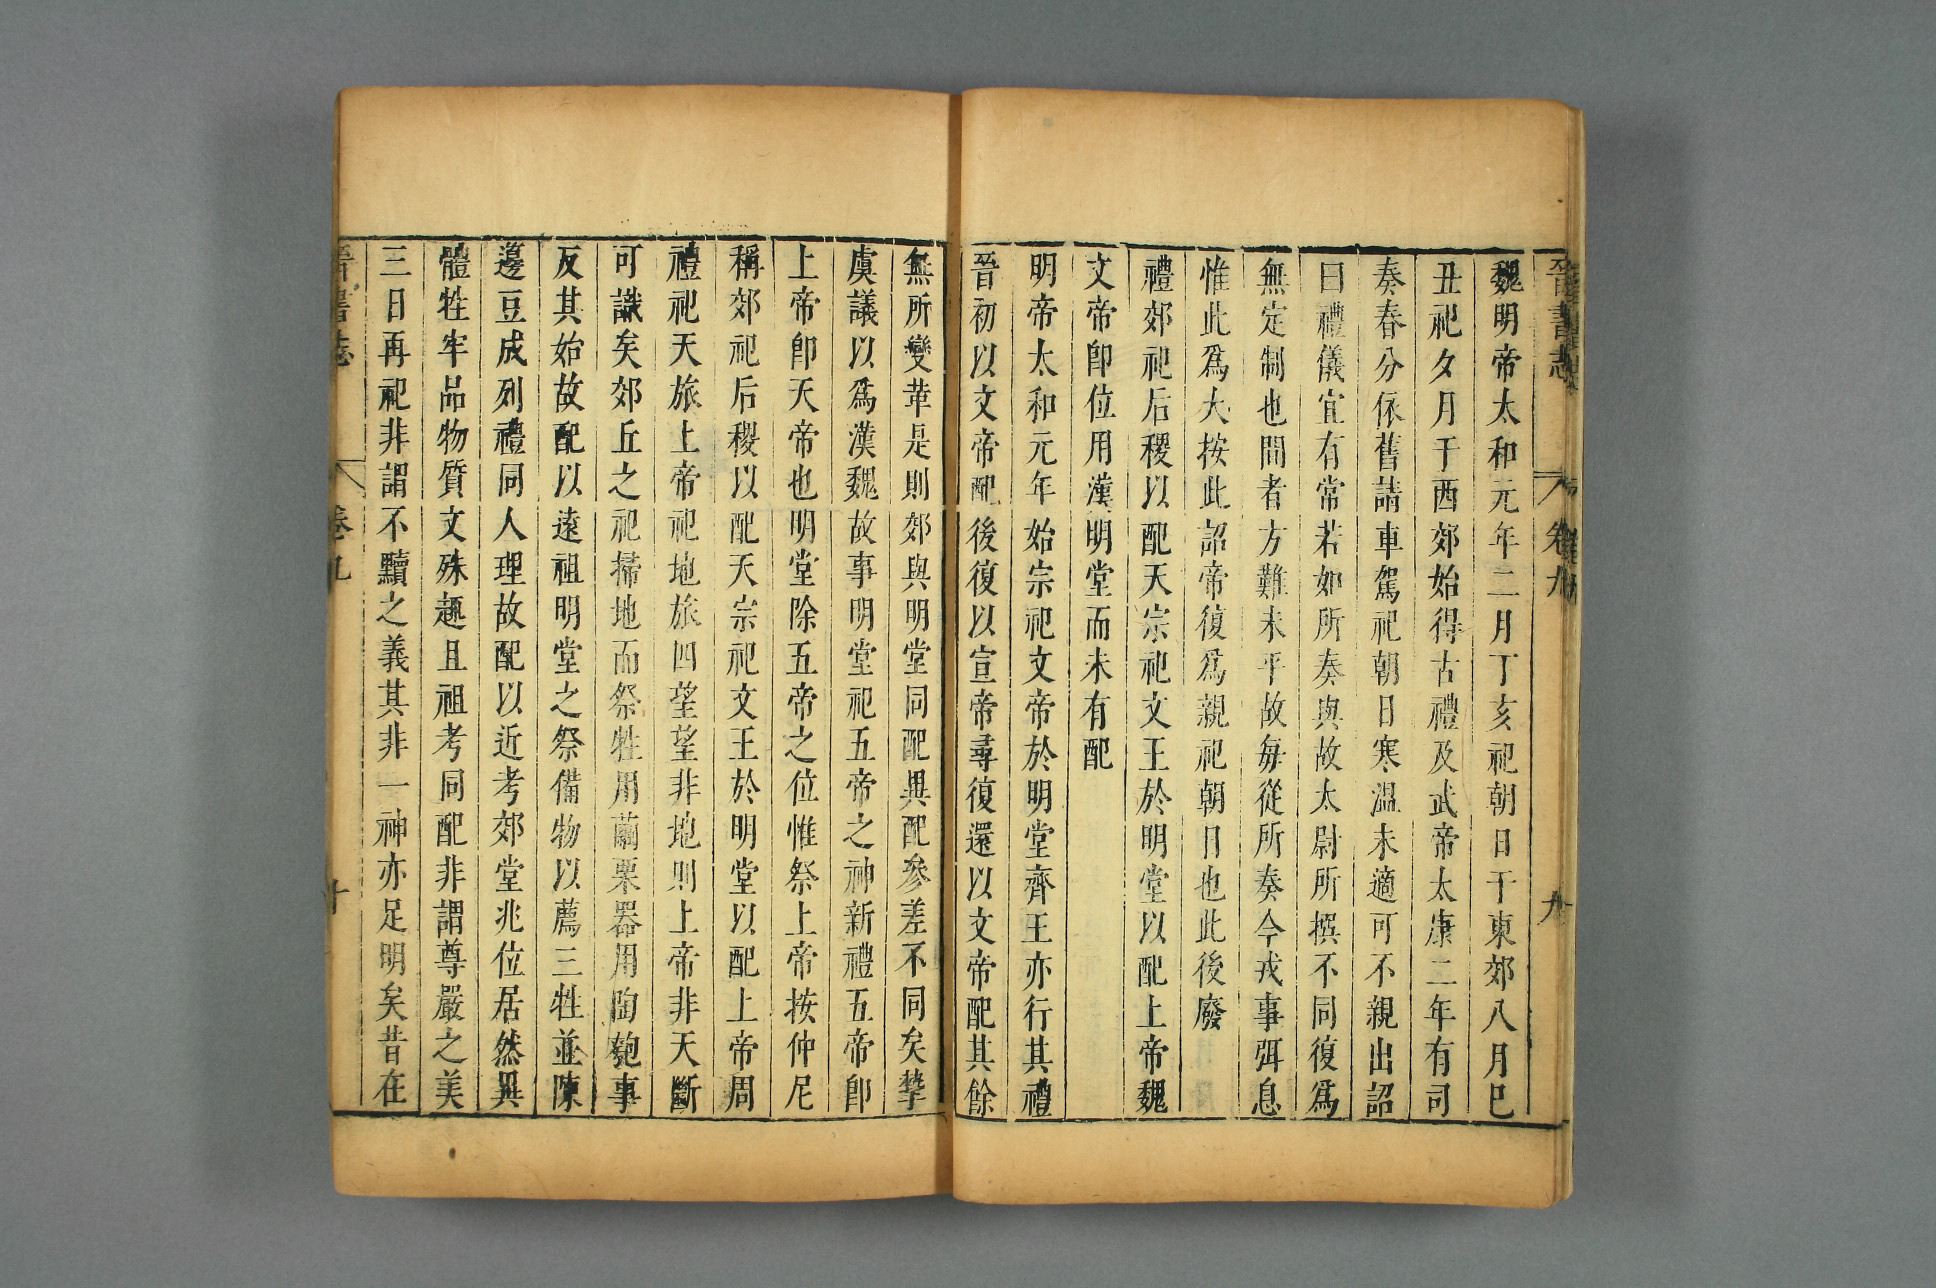 晉書志 卷九 九
魏明帝太和元年二月丁亥祀朝日于東郊八月巳
丑祀夕月于西郊始得古禮及武帝太康二年有司
奏春分依舊請車駕祀朝日寒温未適可不親出詔
曰禮儀宜有常若如所奏與故太尉所撰不同復爲
無定制也間者方難未平故每從所奏今戎事弭息
惟此爲大按此詔帝復爲親祀朝日也此後廢
禮郊祀后稷以配天宗祀文王於明堂以配上帝魏
文帝卽位用漢明堂而未有配
明帝太和元年始宗祀文帝於明堂齊王亦行其禮
晉初以文帝配後復以宣帝尋復還以文帝配其餘
無所變革是則郊與明堂同配異配參差不同矣摯
虞議以爲漢魏故事明堂祀五帝之神新禮五帝卽
上帝卽天帝也明堂除五帝之位惟祭上帝按仲尼
稱郊祀后稷以配天宗祀文王於明堂以配上帝周
禮祀天旅上帝祀地旅四望望非地則上帝非天斷
可識矣郊丘之祀掃地而祭牲用繭栗器用陶匏事
反其始故配以遠祖明堂之祭備物以薦三牲並陳
籩豆成列禮同人理故配以近考郊堂兆位居然異
體牲牢品物質文殊趣且祖考同配非謂尊嚴之美
三日再祀非謂不黷之義其非一神亦足明矣昔在
晉書志 卷九 十